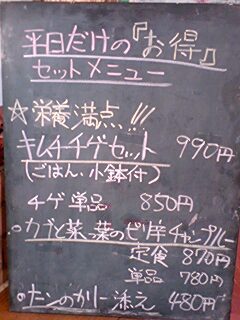 平日だけの『お得』
セットメニュー
☆栄養満点!!!
キムチチゲセット 990円
(ごはん・小鉢付)
チゲ単品 850円
○カブと菜っ葉のピリ辛チャンプルー
定食 870円
単品 780円
○ナンのカリー添え 480円